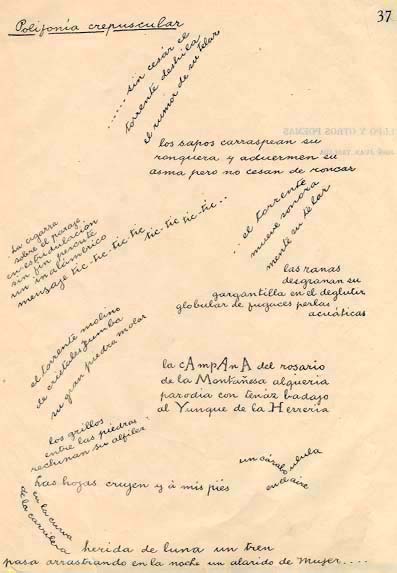 37
Polifonía crepuscular
......sin cesár el
torrente deshila
el rumor de su telar
LI-PO Y OTROS POEMAS
JOSÉ JUAN TABLADA
los sapos carraspean su
ronquera y aduermen su
asma pero no cesan de roncar
...el torrente
mueve sonora
mente su telar
La cigarra
sobre el paraje
en estridulación
sin fin permite
un inalámbrico
mensaje tic-tic-tic-tic tic-tic-tic-tic...
las ranas
desgranan su
gargantilla en el deglutir
globular de fugaces perlas
acuáticas
el torrente molino
de cristales zumba
su gran piedra molar
la cAmpAnA del rosario
de la Montañesa alquería
parodia con tenaz badajo
al Yunque de la Herrería
los grillos
entre las piedras
rechinan su alfiler
un cárabo ulula
en el aire
Las hojas crujen y à mis piés
en la curva
de la carrilera
herida de luna un tren
pasa arrastrando en la noche un alarido de mujer....